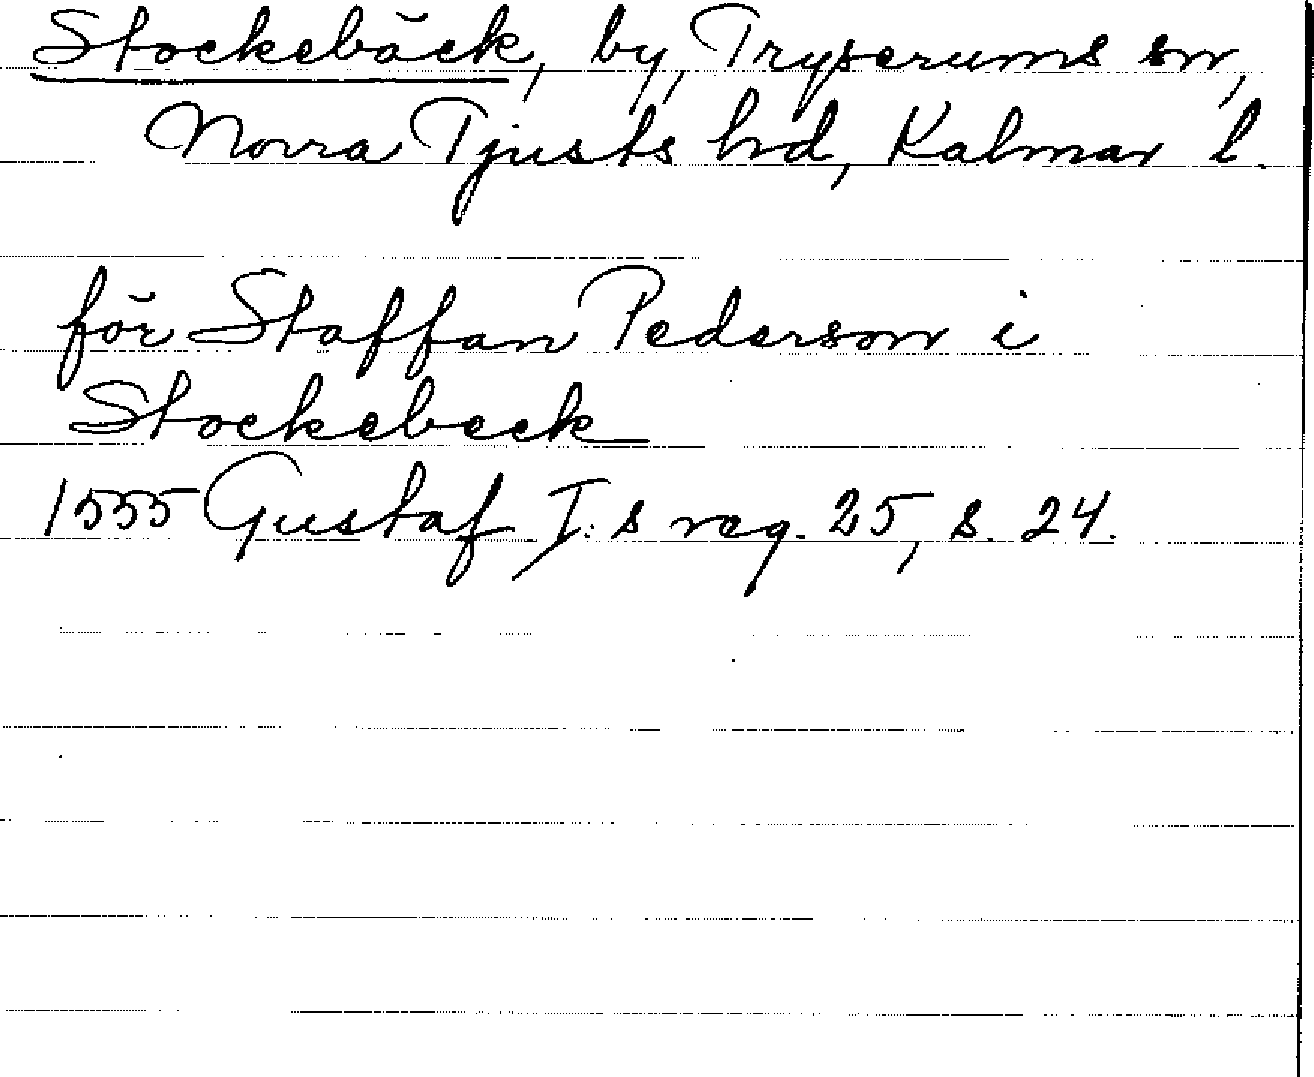 Stockebäck, by, Tryserums sn,
Norra Tjusts hd, Kalmar l.
för Staffan Pederson i
Stockebeck
1555 Gustaf I:s reg. 25, s. 24.